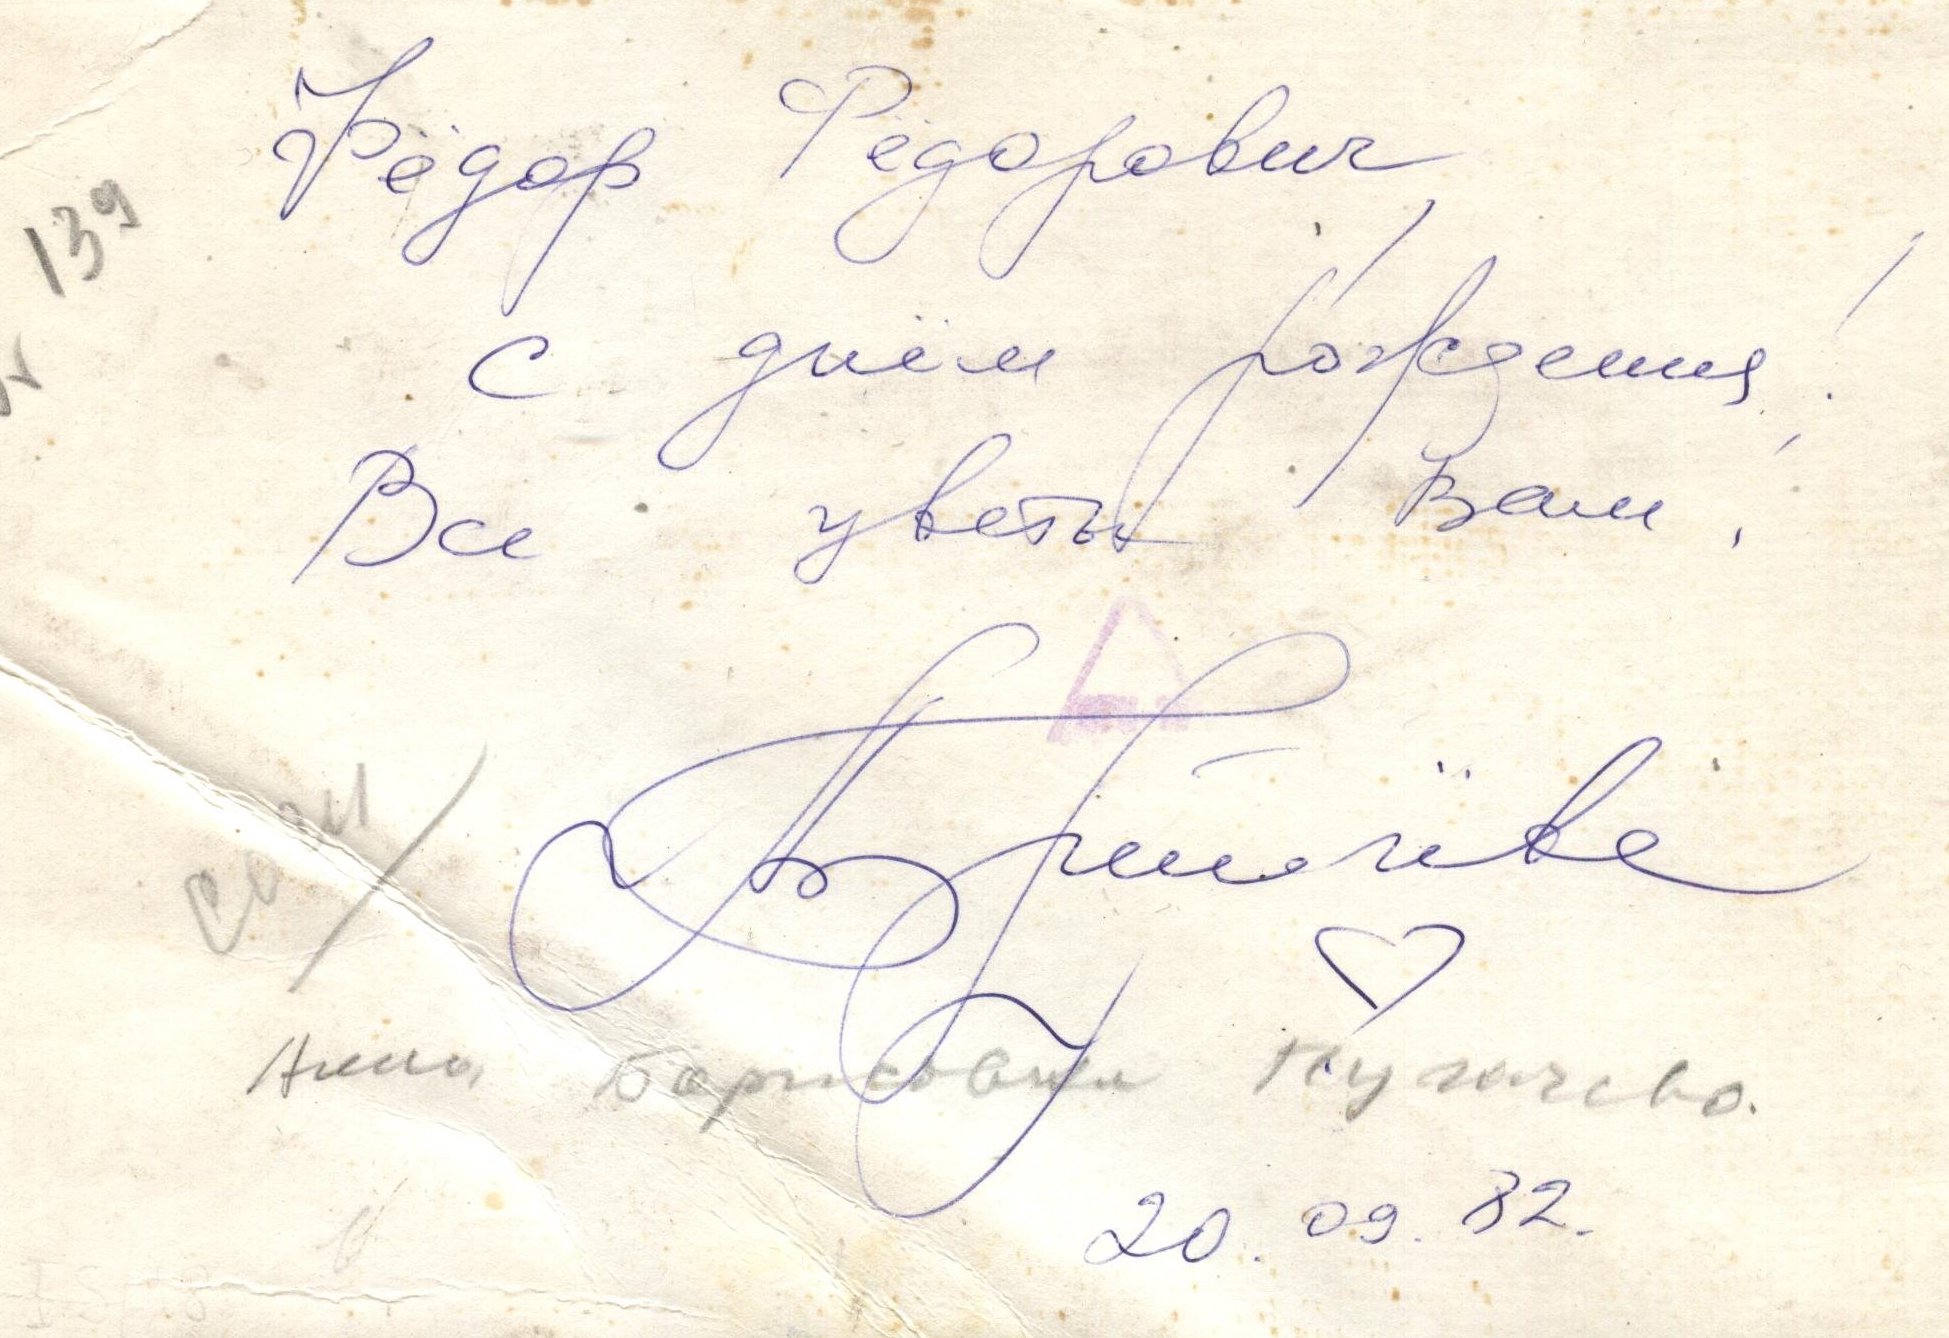 Фёдор Фёдорович
139
с днём рождения!
Все цветы Вам!
Анна Борисовна Пугачева.
20.09.82.